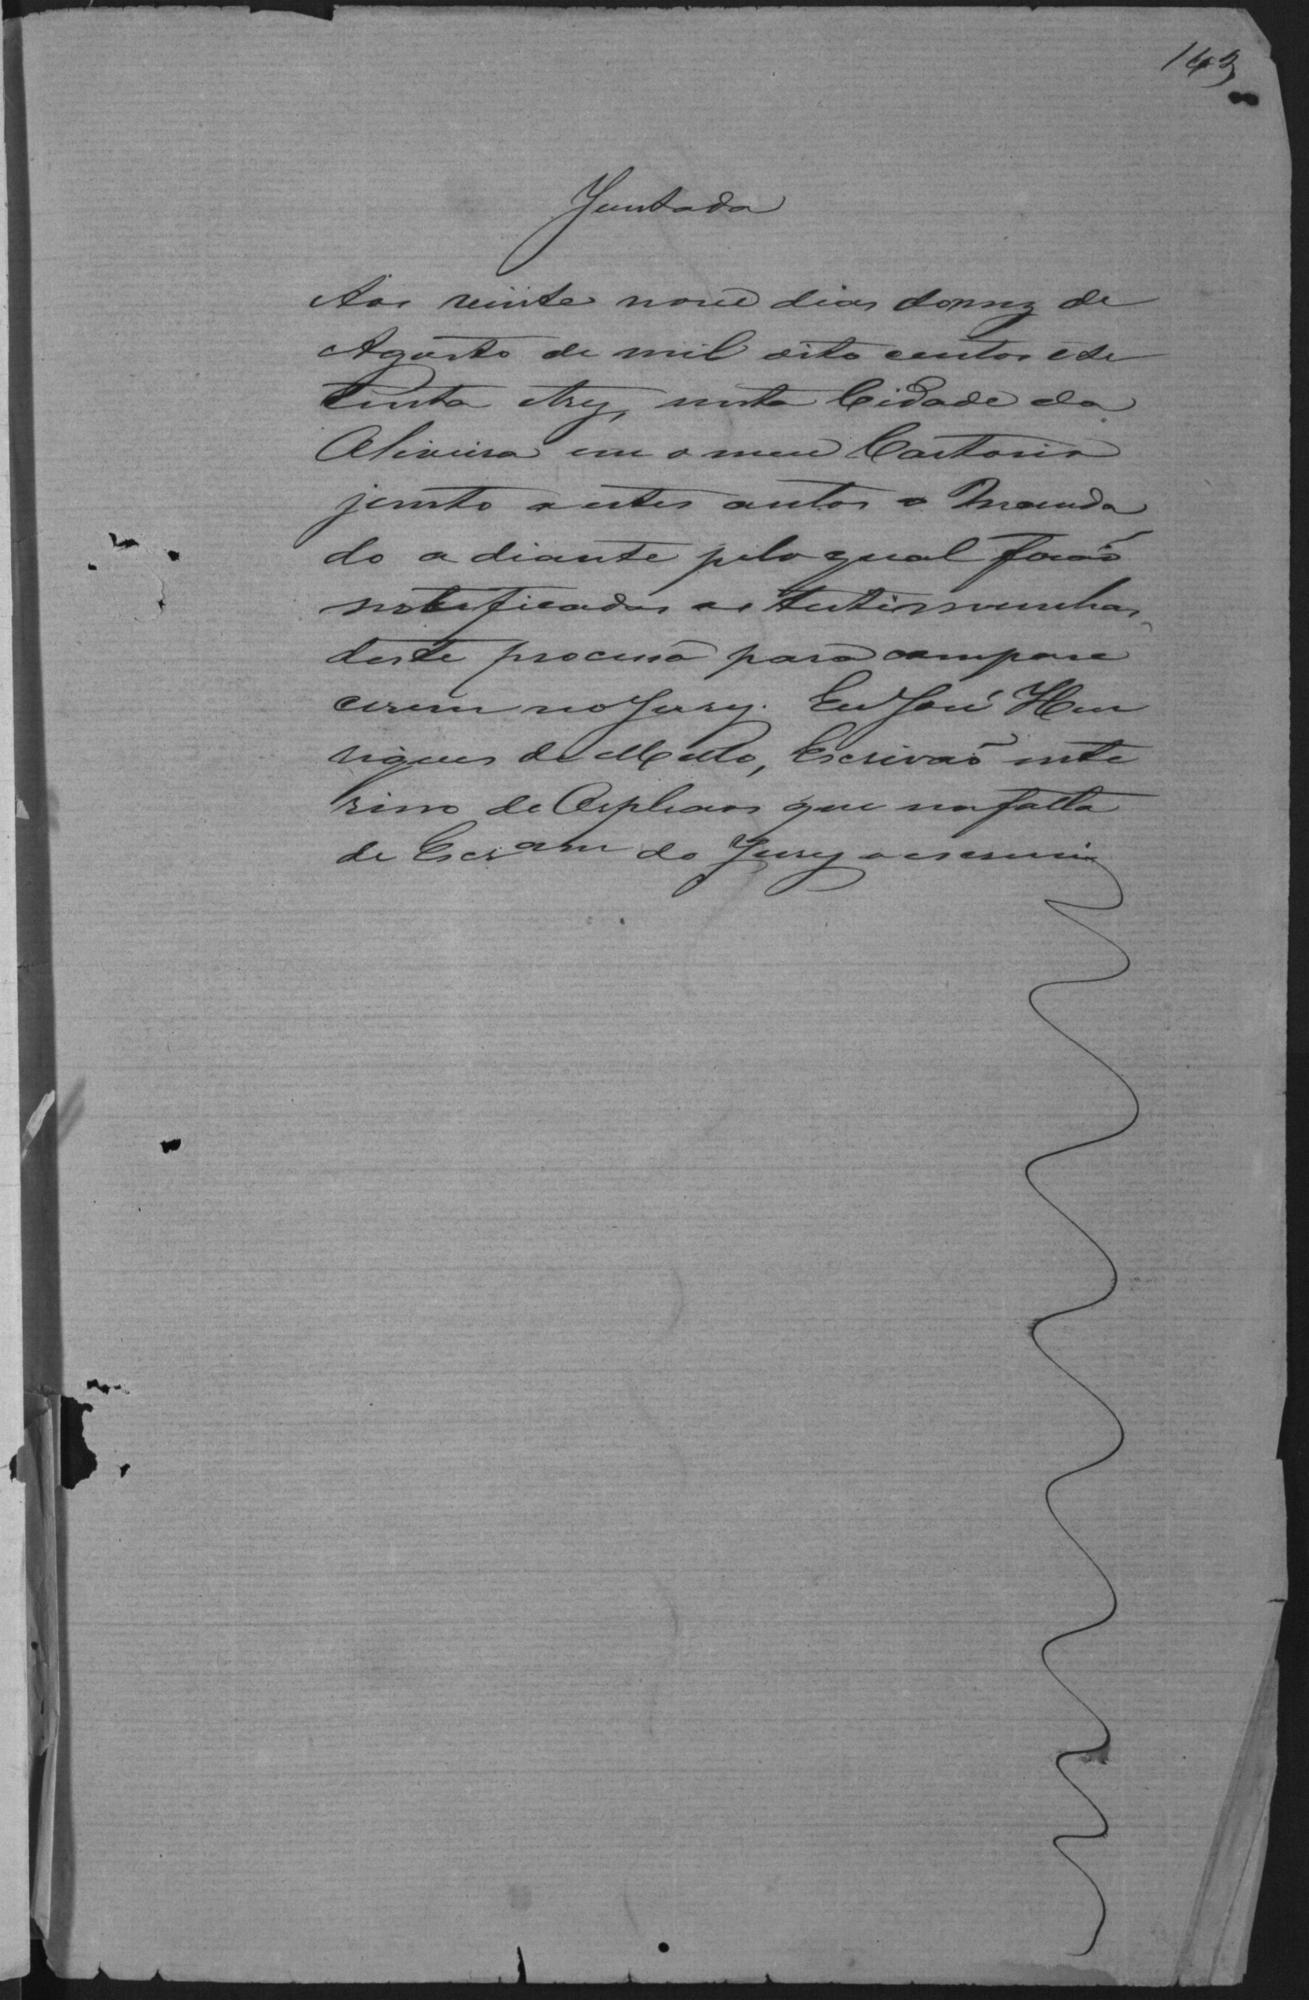 143
Juntada
Aos vinte nove dias do mez de
Agosto de mil oito centos e se
tenta e trez, nesta Cidade da
Oliveira em o meu Cartorio
junto a estes autos o Manda
do a diante pelo qual forão
notificadas as testimunhas
deste processo para compare
cerem no Jury. Eu José Hen
riques de Mello, Escrivão inte
rino de Orphaos que na falta
de Escr am do Jury o escrevi